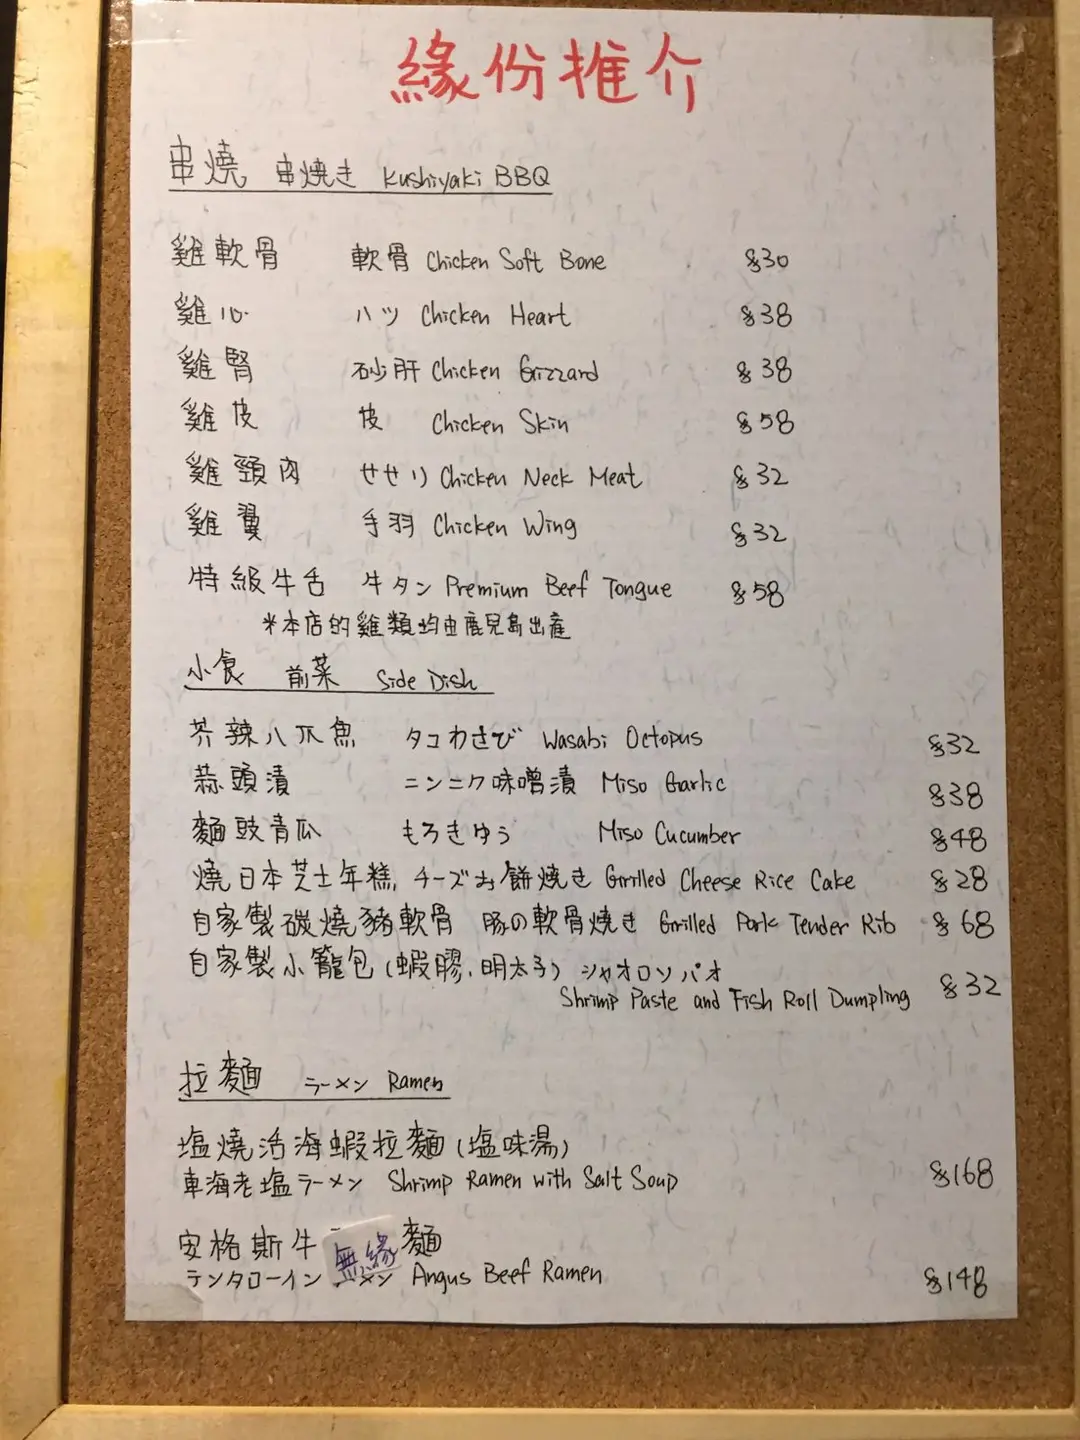 緣份推介
串燒 串焼き Kushiyaki BBQ
雞軟骨 軟骨 Chicken Soft Bone $30
雞心 ハツ Chicken Heart $38
雞腎 砂肝 Chicken Gizzard $38
雞皮 皮 Chicken Skin $58
雞頸肉 せせり Chicken Neck Meat $32
雞翼 手羽 Chicken Wing $32
特級牛舌 牛タン Premium Beef Tongue $58
*本店的雞類均由鹿児島出產
小食 前菜 Side Dish
芥辣八爪魚 タコわさび Wasabi Octopus $32
蒜頭漬 ニンニク味噌漬 Miso Garlic $38
麵豉青瓜 もろきゆう Miso Cucumber $48
燒日本芝士年糕, チーズお餅焼き Grilled Cheese Rice Cake $28
自家製碳燒豬軟骨 豚の軟骨焼き Grilled Pork Tender Rib $68
自家製小籠包(蝦膠,明太子) シャオロンパオ
Shrimp Paste and Fish Roll Dumpling $32
拉麵 ラーメン Ramen
塩燒活海蝦拉麵(塩味湯)
車海老塩ラーメン Shrimp Ramen with Salt Soup $168
安格斯牛 麵
無緣
テンタローイン メン Angus Beef Ramen $148